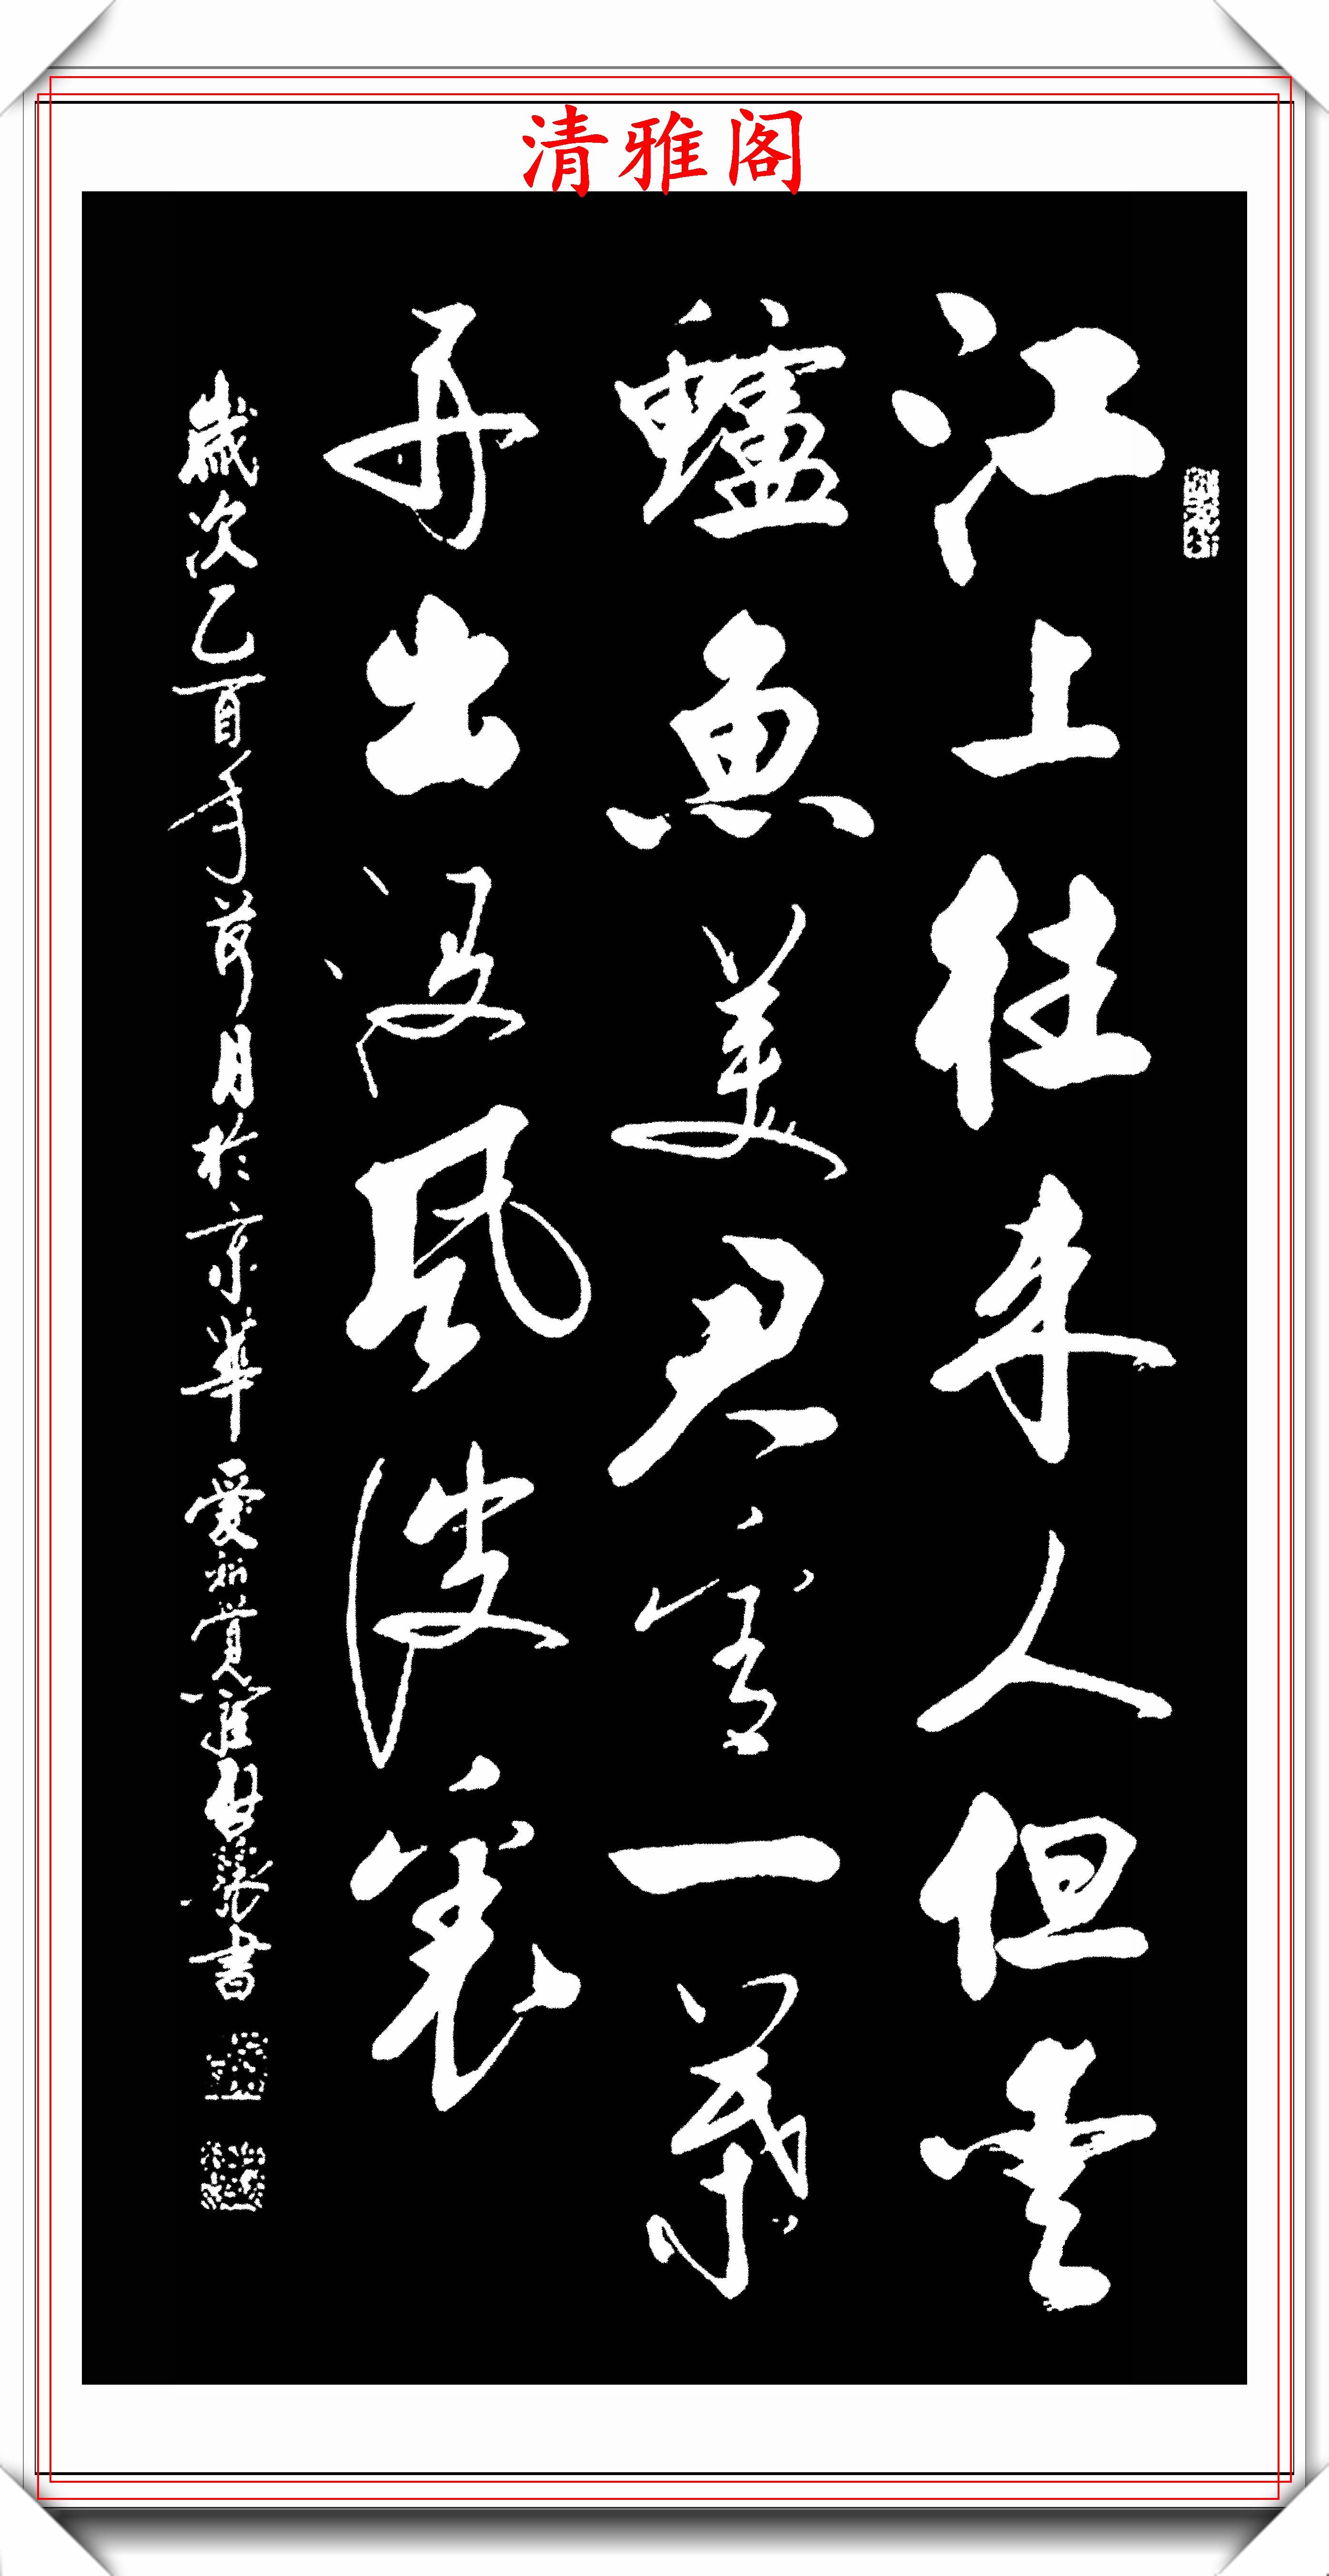 清雅阁
江上往来人但愛
鱸魚美君看一葉
舟出没風波裏
歲次乙酉年荷月於京華愛新覺羅啓驤書